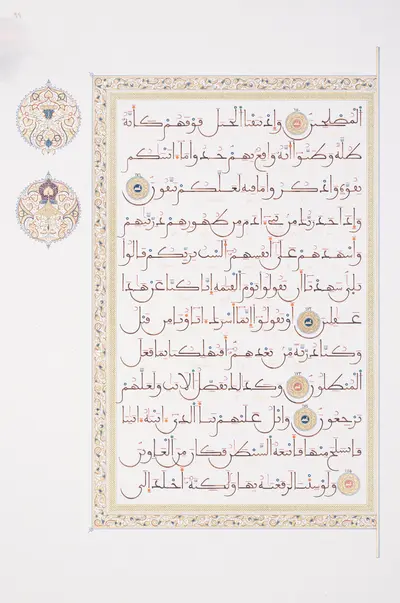 المصلحين وإذ نتقنا الجبل فوقهم كأنه
ظلة وظنوا أنه واقع بهم خذوا ما ءاتينكم
بقوة واذكروا ما فيه لعلكم تتقون
وإذ أخذ ربك من بني ءادم من ظهورهم ذريتهم
وأشهدهم على أنفسهم ألست بربكم قالوا
بلى شهدنا أن تقولوا يوم القيمة إنا كنا عن هذا
غفلين أو تقولوا إنما أشرك ءاباؤنا من قبل
وكنا ذرية من بعدهم أفتهلكنا بما فعل
المبطلون وكذلك نفصل الأيت ولعلهم
يرجعون واتل عليهم نبأ الذي ءاتينه ءايتنا
فانسلخ منها فأتبعه الشيطن فكان من الغاوين
ولو شئنا لرفعنه بها ولكنه أخلد إلى